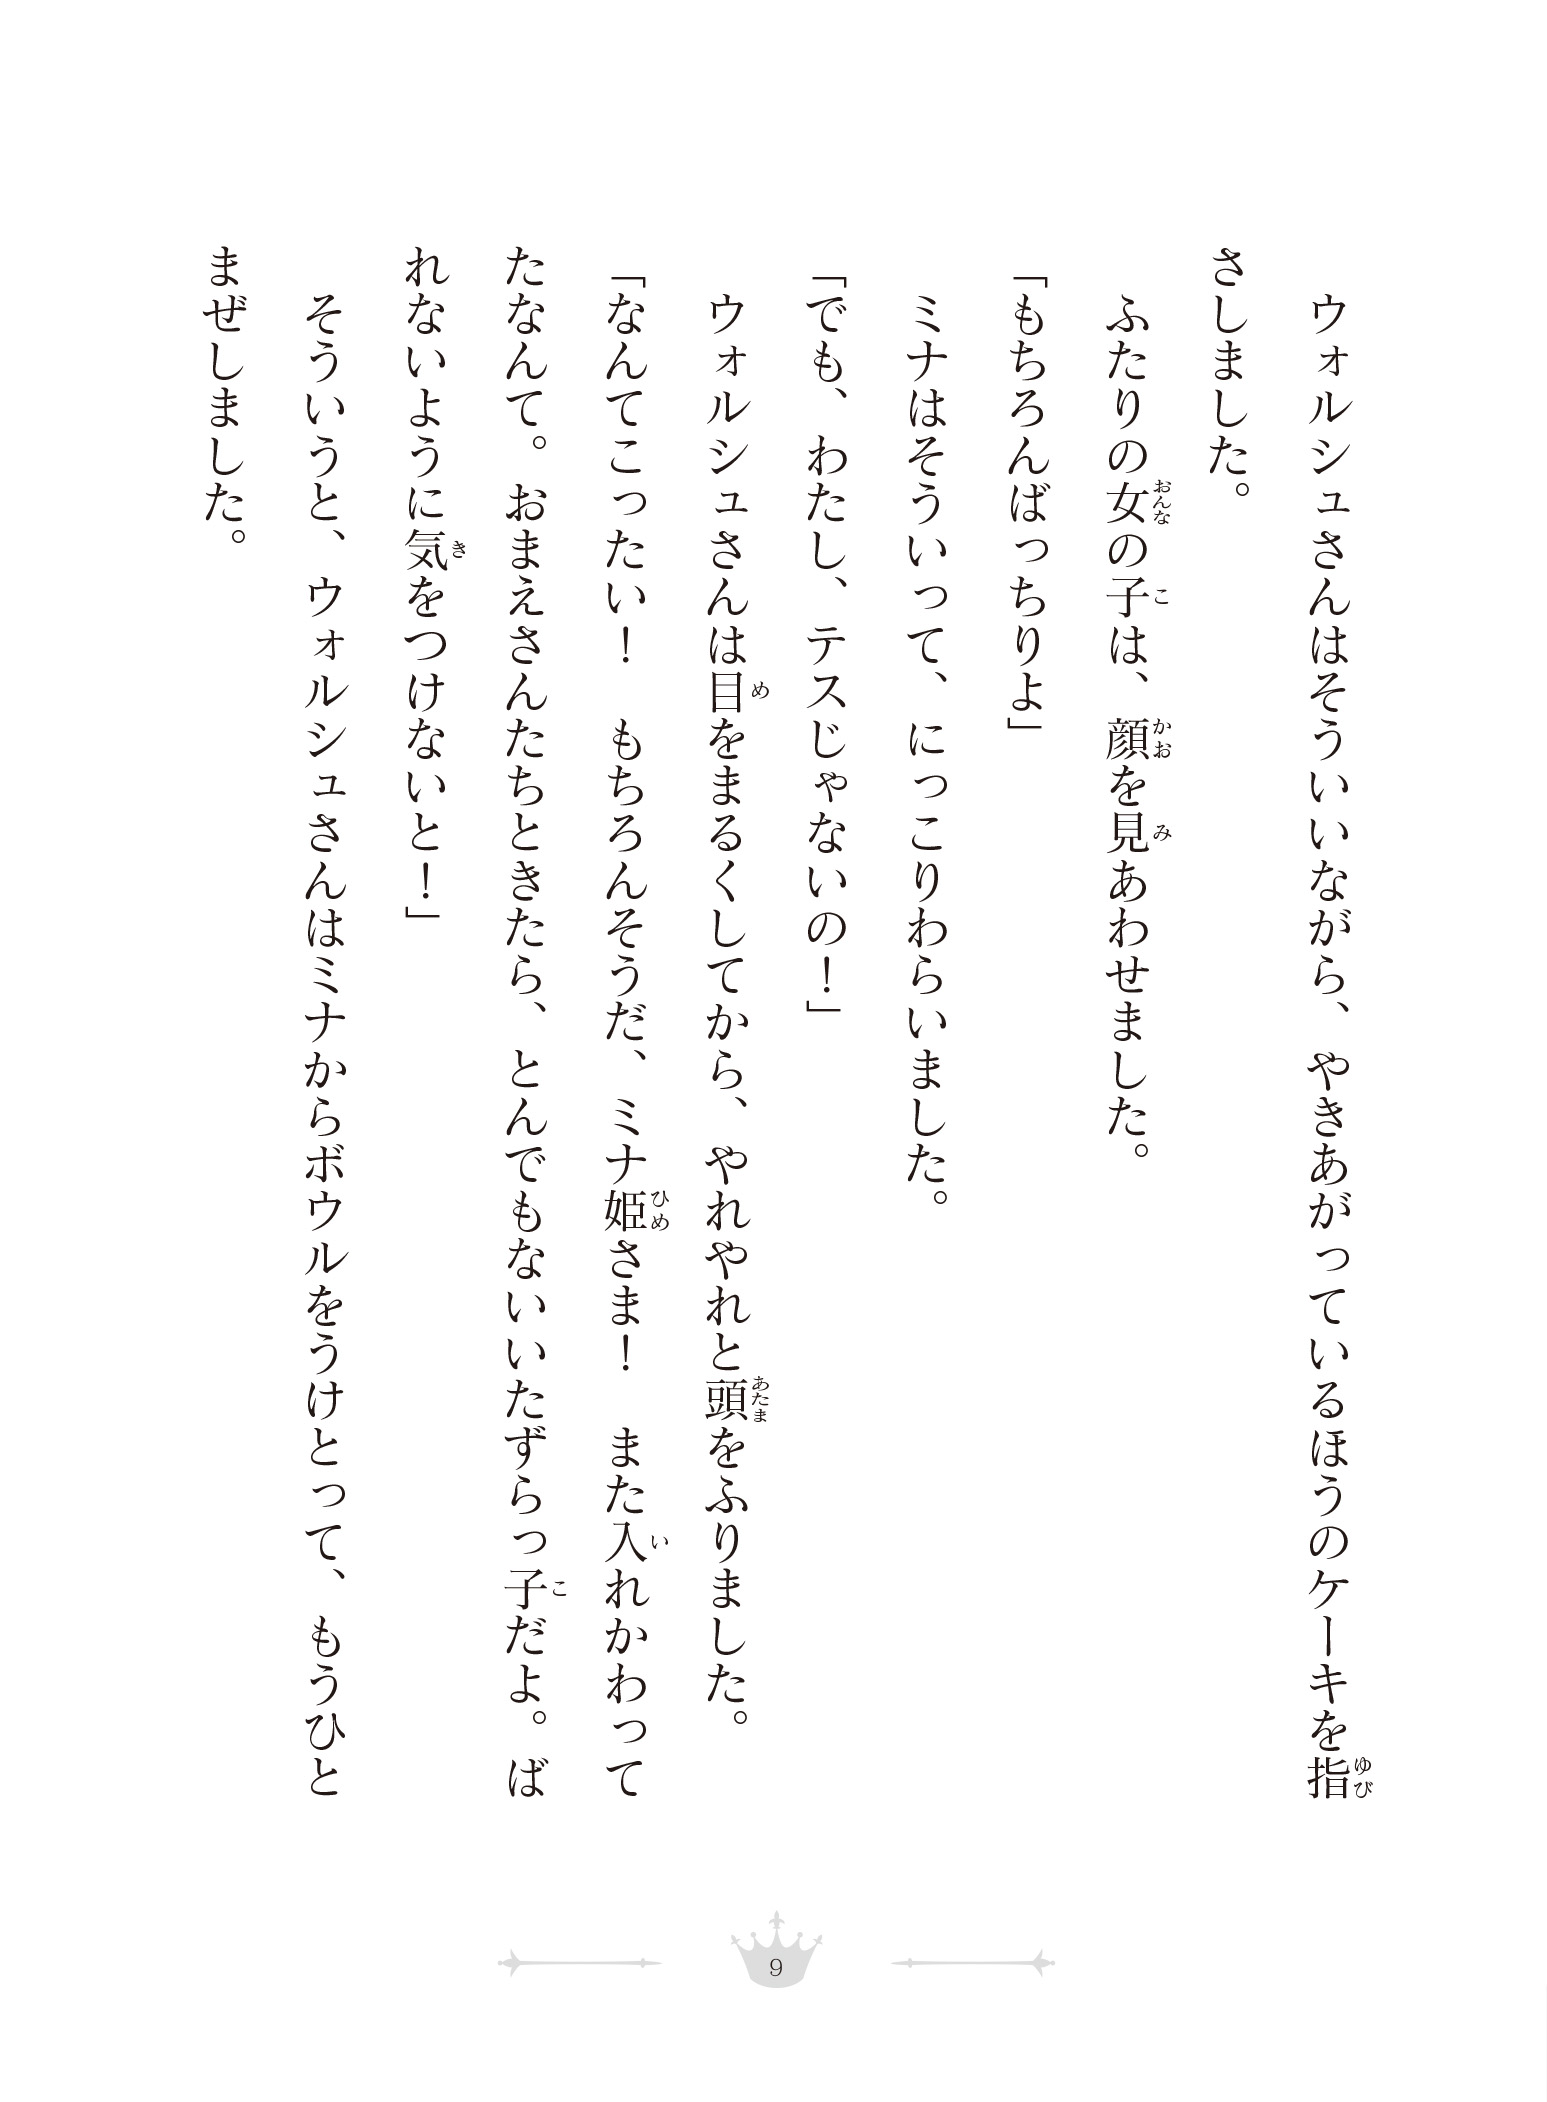 ウォルシュさんはそういいながら、やきあがっているほうのケーキを指
さしました。
　ふたりの女の子は、顔を見あわせました。
「もちろんばっちりよ」
　ミナはそういって、にっこりわらいました。
「でも、わたし、テスじゃないの！」
　ウォルシュさんは目をまるくしてから、やれやれと頭をふりました。
「なんてこったい！　もちろんそうだ、ミナ姫さま！　また入れかわって
たなんて。おまえさんたちときたら、とんでもないいたずらっ子だよ。ば
れないように気をつけないと！」
　そういうと、ウォルシュさんはミナからボウルをうけとって、もうひと
まぜしました。
9